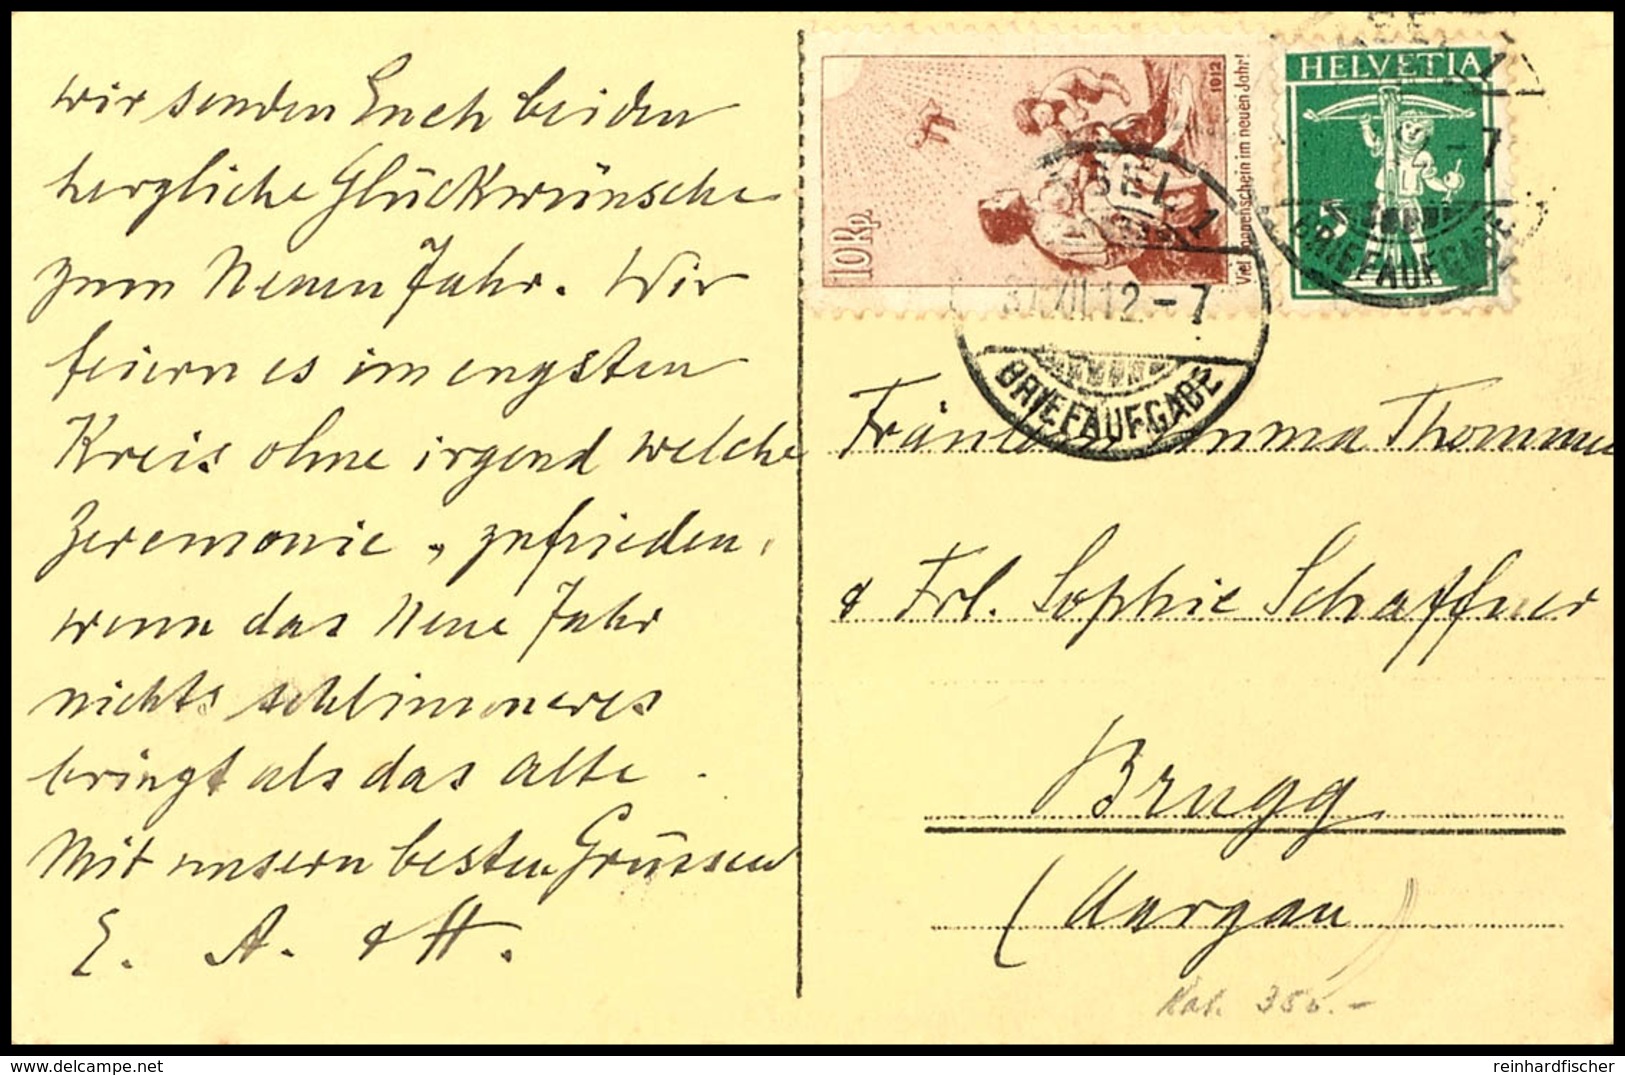 wir senden Euch beiden
herzliche Glückwünsche
zum Neuen Jahr. Wir
feiern es im engsten
Kreis ohne irgend welche
Zeremonie, zufrieden,
wenn das Neue Jahr
nichts schlimmeres
bringt als das alte.
Mit unsern besten Grüssen
E. A. & H.
10 Rp.
Viel Sonnenschein im neuen Jahr!
1912
HELVETIA
5
BASEL 1
XII.12.-7
BRIEFAUFGABE
-7
BRIEFAUFGABE
Fräulein Emma Thommen
& Frl. Sophie Schaffner
Brugg
(Aargau)
Kat. 350.-
reinhardfischer